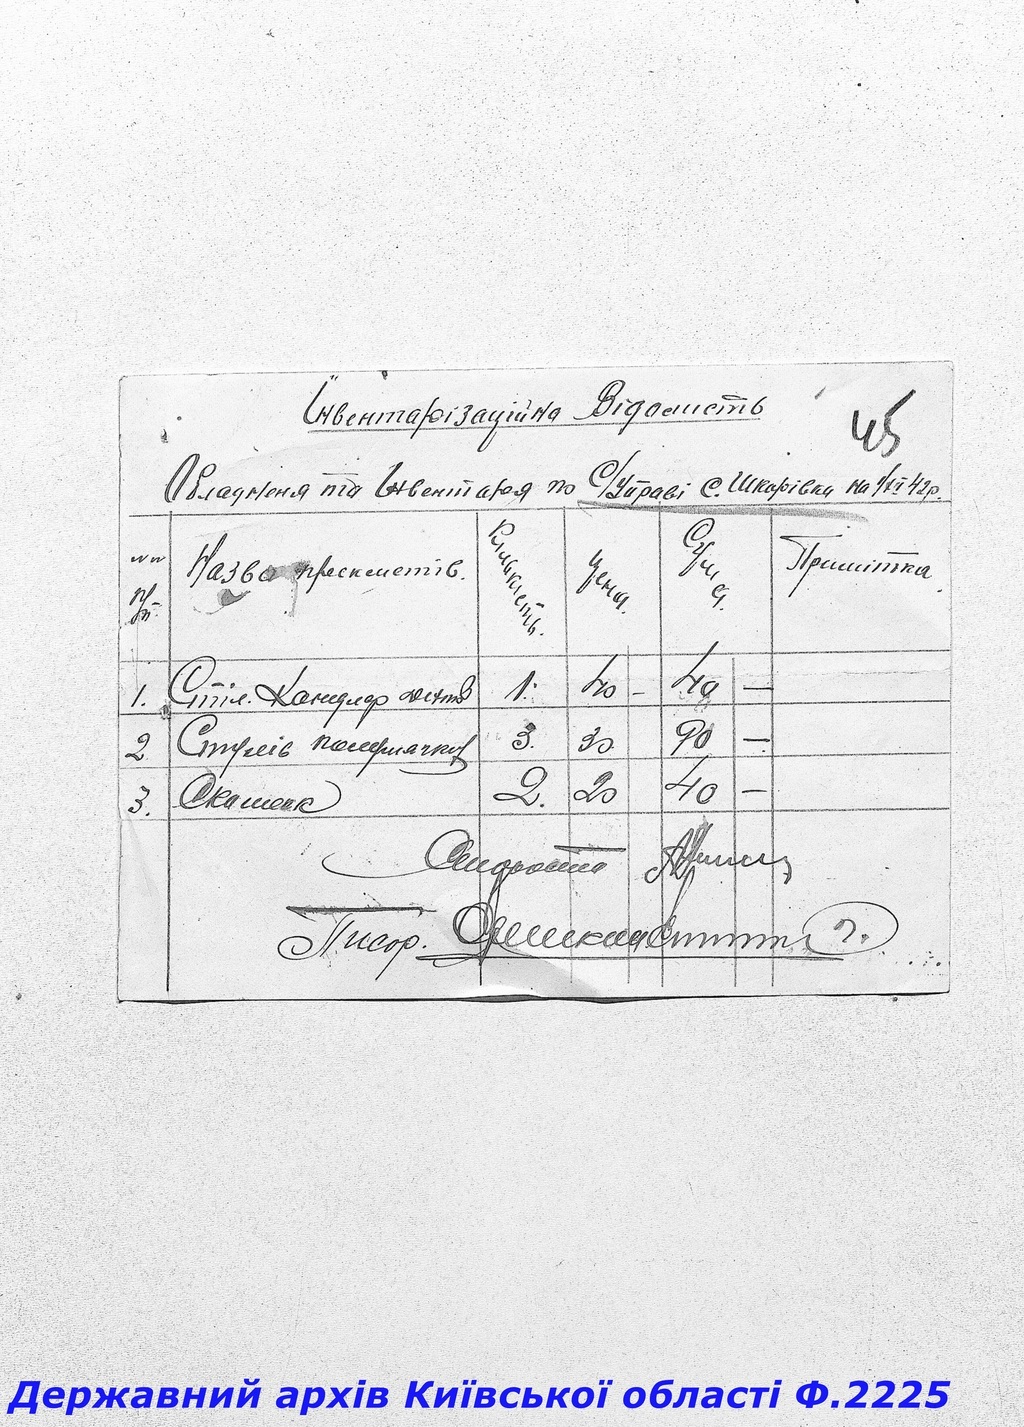 Інвентарізаційна Відомисть
45
Обладнення та Інвентаря по С/Управі с. Шкарівка на 1/VII 42 р.
№№ п/п. Назва предметів. Кількість. Цена. Сума. Примітка.
1. Стіл. Канцляр 1. 40 – 40 –
2 Стулів 3. 30 90 –
3. Скамеек 2. 20 40 –
Староста
Писор.
Державний архів Київської області Ф.2225